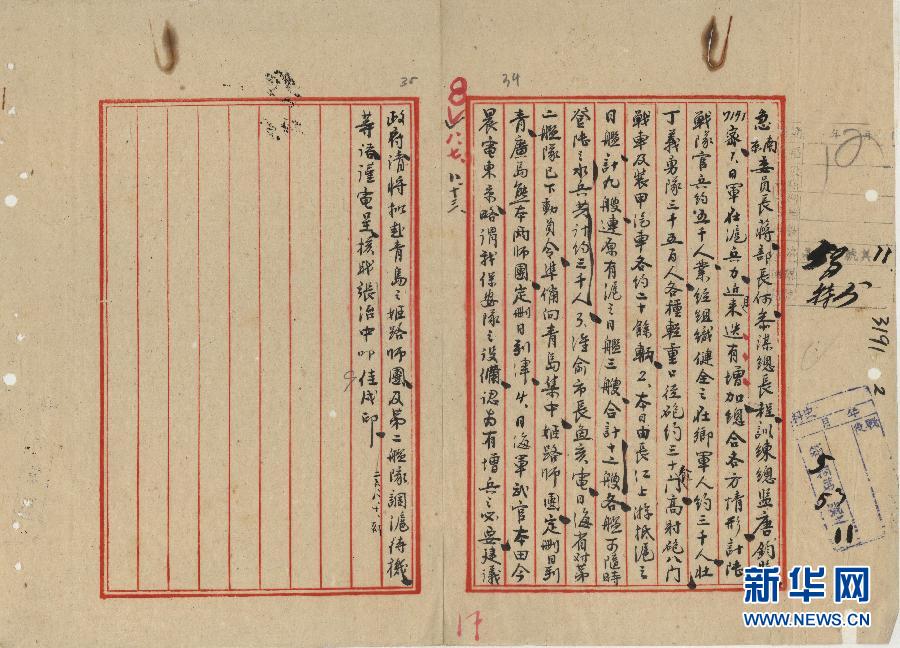 急南京委員長蔣部長何參謀總長程訓練總監唐鈞鑒
7191密1、日軍在滬兵力近來迭有增加總合各方情形計陸
戰隊官兵約五千人業經組織健全之在鄉軍人約三千人壯
丁義勇隊三千五百人各種輕重口徑砲約三十門高射砲八門
戰車及裝甲汽車各約二十餘輛2、本日由長江上游抵滬之
日艦計九艘連原有滬之日艦三艘合計十二艘各艦可隨時
登陸之水兵共計約三千人3、准俞市長魚亥電日海省對第
二艦隊已下動員令準備向青島集中姬路師團定刪日到
青廣島熊本兩師團定刪日到津4、日海軍武官本田今
晨電東京略謂我保安隊之設備認為有增兵之必要建議
政府請將擬赴青島之姬路師團及第二艦隊調滬待機
等語謹電呈核職張治中叩佳戌印
34
35
8
八七、八十三
3191
2
11
5
53
11
17
新华网
WWW.NEWS.CN